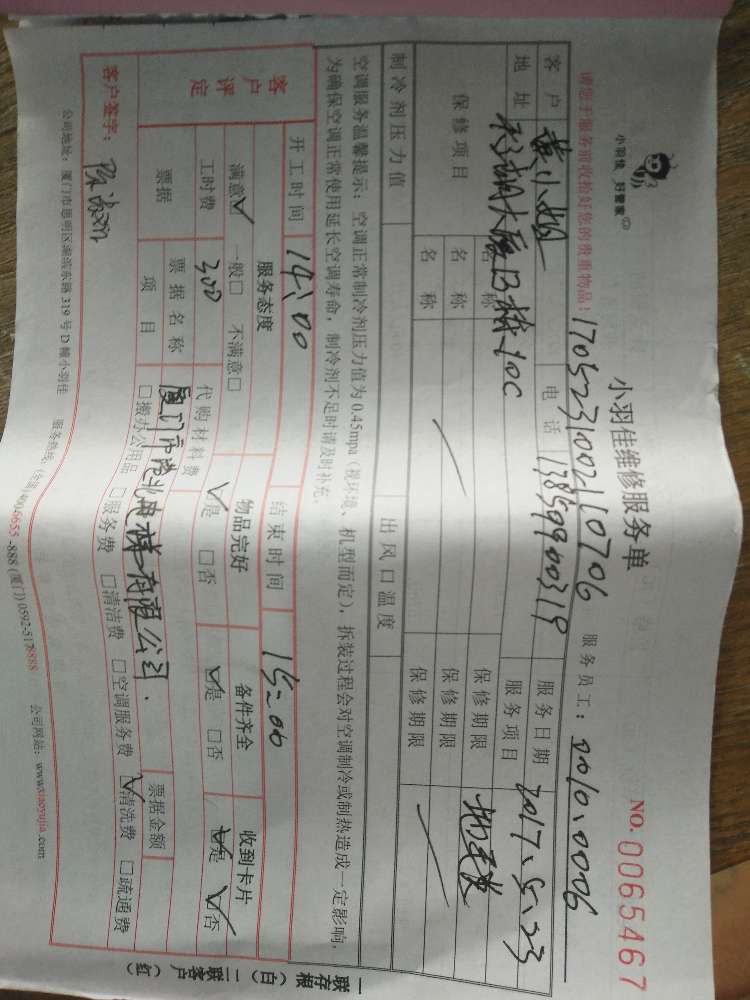 小羽佳 好管家
小羽佳维修服务单
NO. 0065467
请您于服务前收拾好您的贵重物品!
1705231002110706
服务员工:
0010.0006
客户
黄小姐
电话
13859900319
服务日期
2017.5.23
地址
大厦B栋10C
服务项目
保修项目
名称
保修期限
名称
保修期限
名称
保修期限
制冷剂压力值
出风口温度
空调服务温馨提示:空调正常制冷剂压力值为0.45mpa(视环境、机型而定),拆装过程会对空调制冷或制热造成一定影响,
为确保空调正常使用延长空调寿命,制冷剂不足时请及时补充。
开工时间
14:00
结束时间
15:00
客户评定
服务态度
物品完好
备件齐全
收到卡片
满意☑ 一般□ 不满意□
☑是 □否
☑是 □否
是 ☑否
工时费
300
代购材料费
票据
票据名称
厦门市港北电梯有限公司.
票据金额
项目
□搬办公用品 □服务费 □清洁费 □空调服务费 ☑清洗费 □疏通费
客户签字:
公司地址:厦门市思明区湖滨东路319号D幢小羽佳 服务热线:(全国)400-6655-888 (厦门)0592-5178888 公司网站:www.xiaoyujia.com
一联存根(白)二联客户(红)